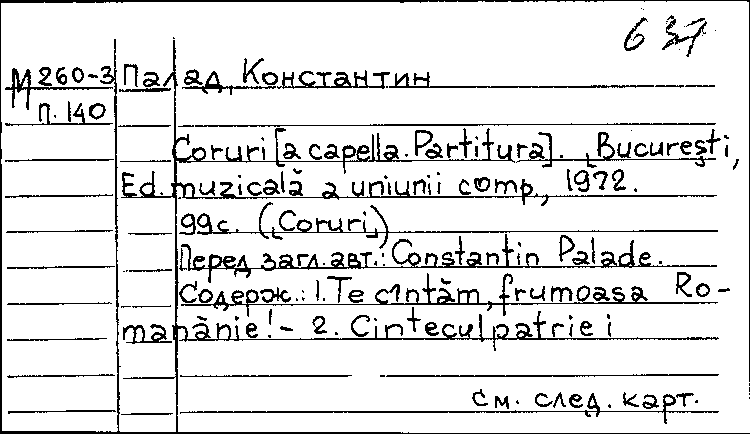 637
М 260-3 Палад, Константин
П. 140
Coruri [a capella. Partitura]. „București,
Ed. muzicală a uniunii comp., 1972.
99с. („Coruri„)
Перед загл. авт.: Constantin Palade.
Содерж.: 1. Te cîntăm, frumoasa Ro-
manănie! - 2. Cintecul patriei
см. след. карт.